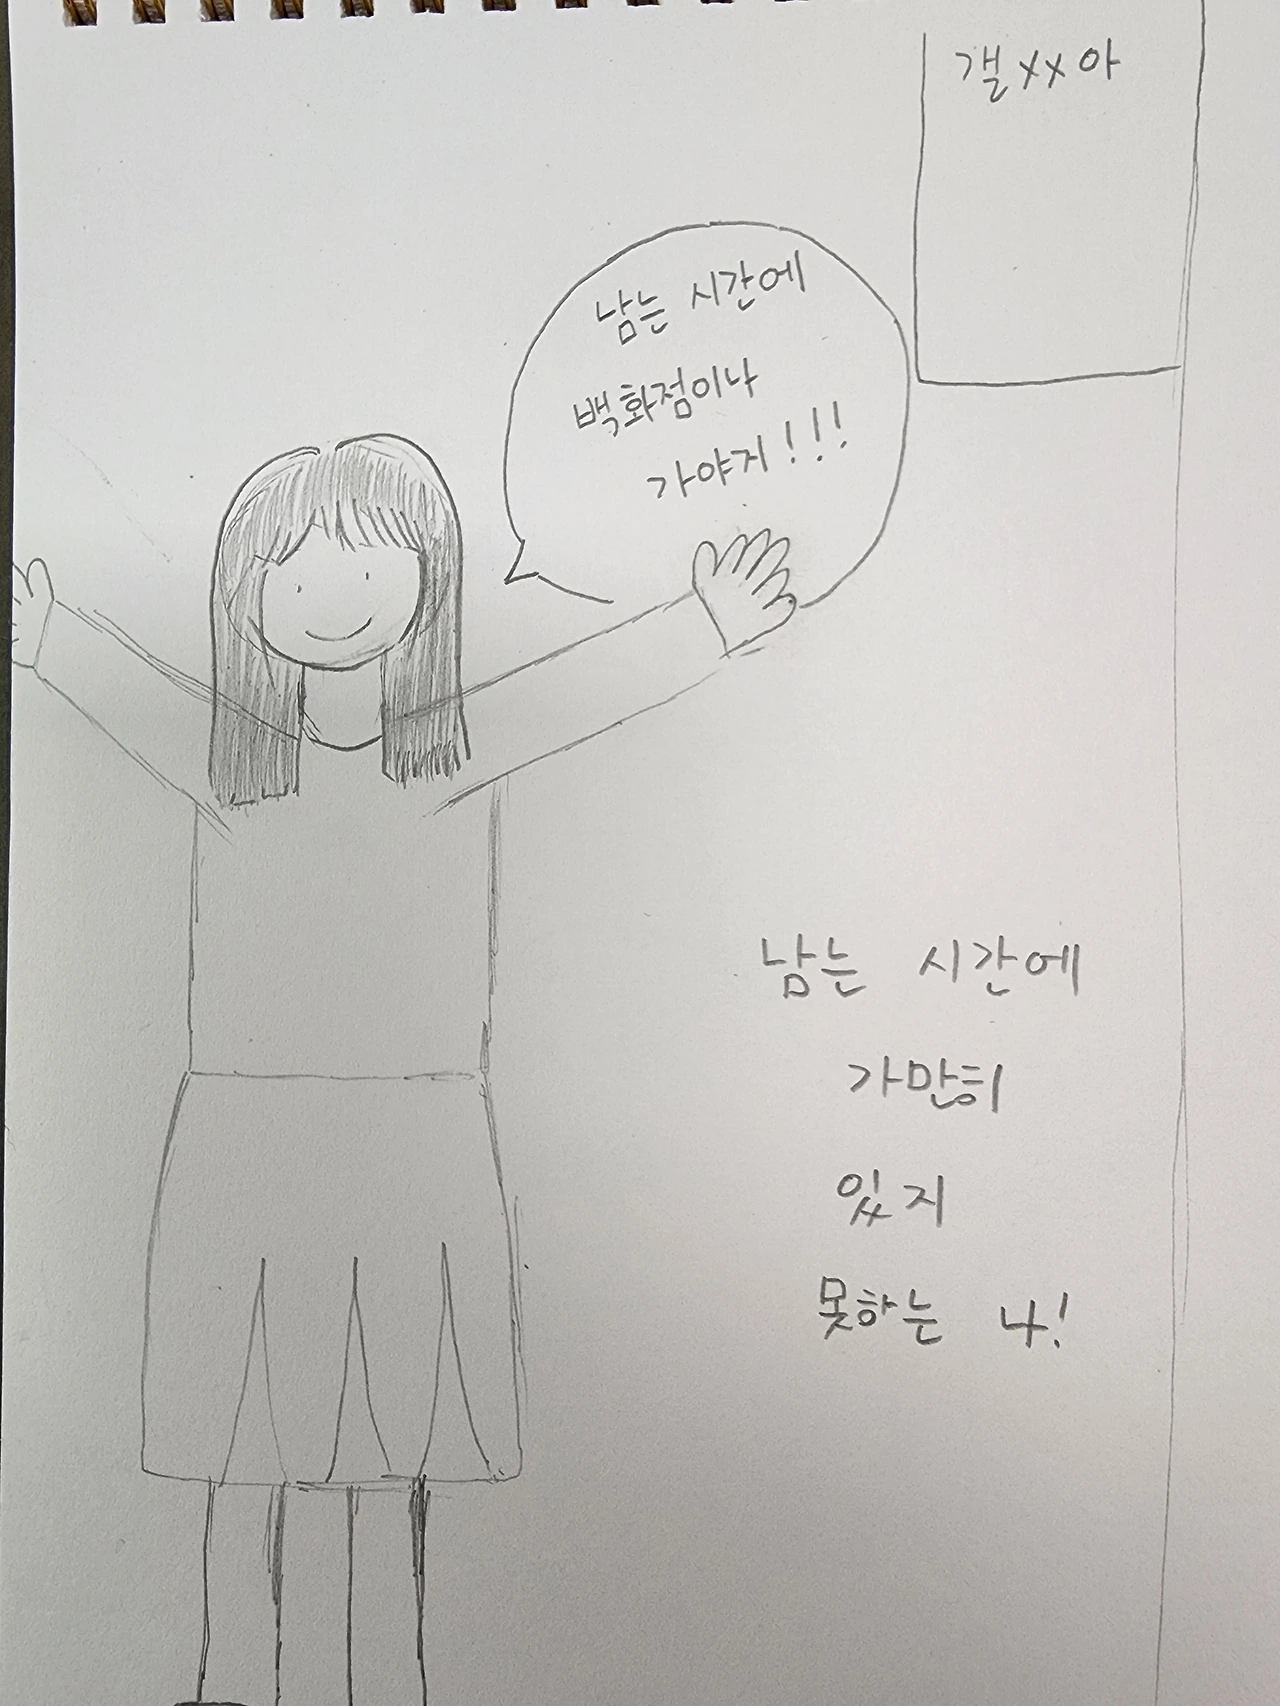 갤xx아
남는 시간에
백화점이나
가야지!!!
남는 시간에
가만히
있지
못하는 나!